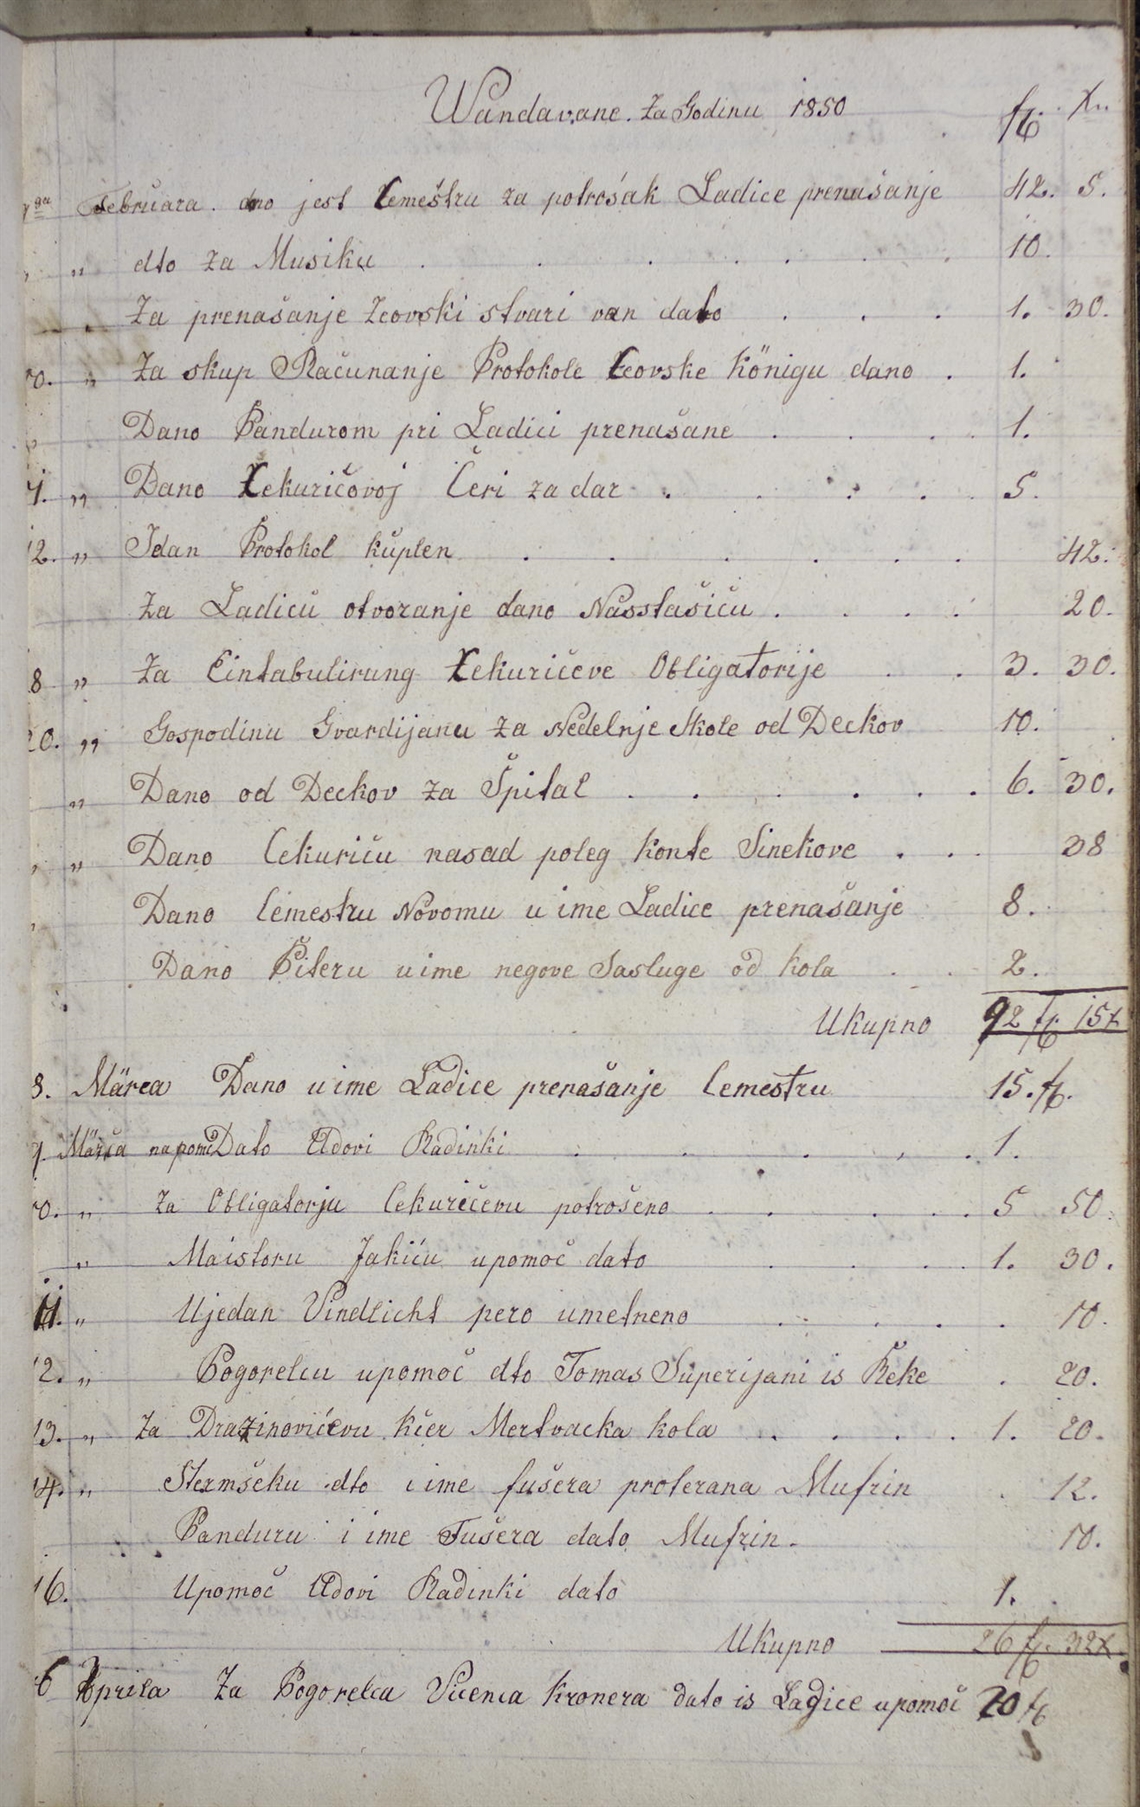 Wandavane. Za Godinu 1850 fl. Xr.
Februara. dno jest Cemeštru za potrošak Ladice prenašanje 42. 5.
" dto za Musiku . . . . . . 10.
Za prenašanje Zeovski stvari van dato . . . 1. 30.
10. " Za skup Računanje Protokole Ceovske Königu dano . 1.
Dano Pandurom pri Ladici prenašane . . . 1.
" Dano Cekuričovoj Čeri za dar . . . . . 5.
12. " Jdan Protokol kuplen . . . . . . 42.
Za Ladicu otvoranje dano Nasstašiću . . . . 20.
8 " Za Eintabulirung Cekuričeve Obligatorije . . 3. 30.
20. " Gospodinu Gvardijanu Za Nedelnje Skole od Deckov 10.
" Dano od Deckov Za Špital . . . . . . 6. 30.
" " Dano Cekuriću nasad poleg Konte Sinekove . . . 38
" Dano Cemestru Novomu u ime Ladice prenašanje 8.
Dano Piteru u ime negove Sasluge od kola . . 2.
Ukupno 92 fl. 15 x
8. Märca Dano u ime Ladice prenašanje Cemestru 15. fl.
9. Märča na pomoč Dato Udovi Radinki . . . . . 1.
10. " za Obligatorju Cekuričevu potrošeno . . . . . 5 50.
" Maistoru Jakiću upomoč dato . . . . 1. 30.
11. " Ujedan Vindlicht pero umetneno . . . . . 10.
12. " Pogorelcu upomoč dto Tomas Superijani is Reke . 20.
13. " Za Drazinovićevu kčer Mertvacka kola . . . . 1. 20.
14. " Stermšeku dto i ime fušera proterana Mufrin . 12.
Panduru i ime Fušera dato Mufrin. 10.
16. Upomoč Udovi Radinki dato 1.
Ukupno 26 fl. 32 x.
6 Aprila Za Pogorelca Vicenca Kronera dato is Ladice upomoč 20 fl